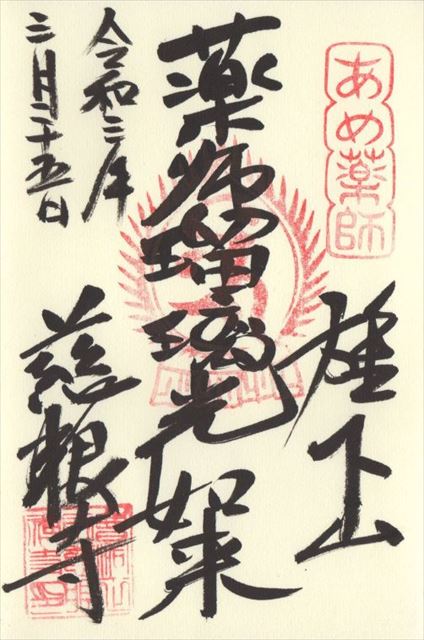 あめ薬師
下山
薬師瑠璃光如来
令和三年
三月二十五日
慈根寺